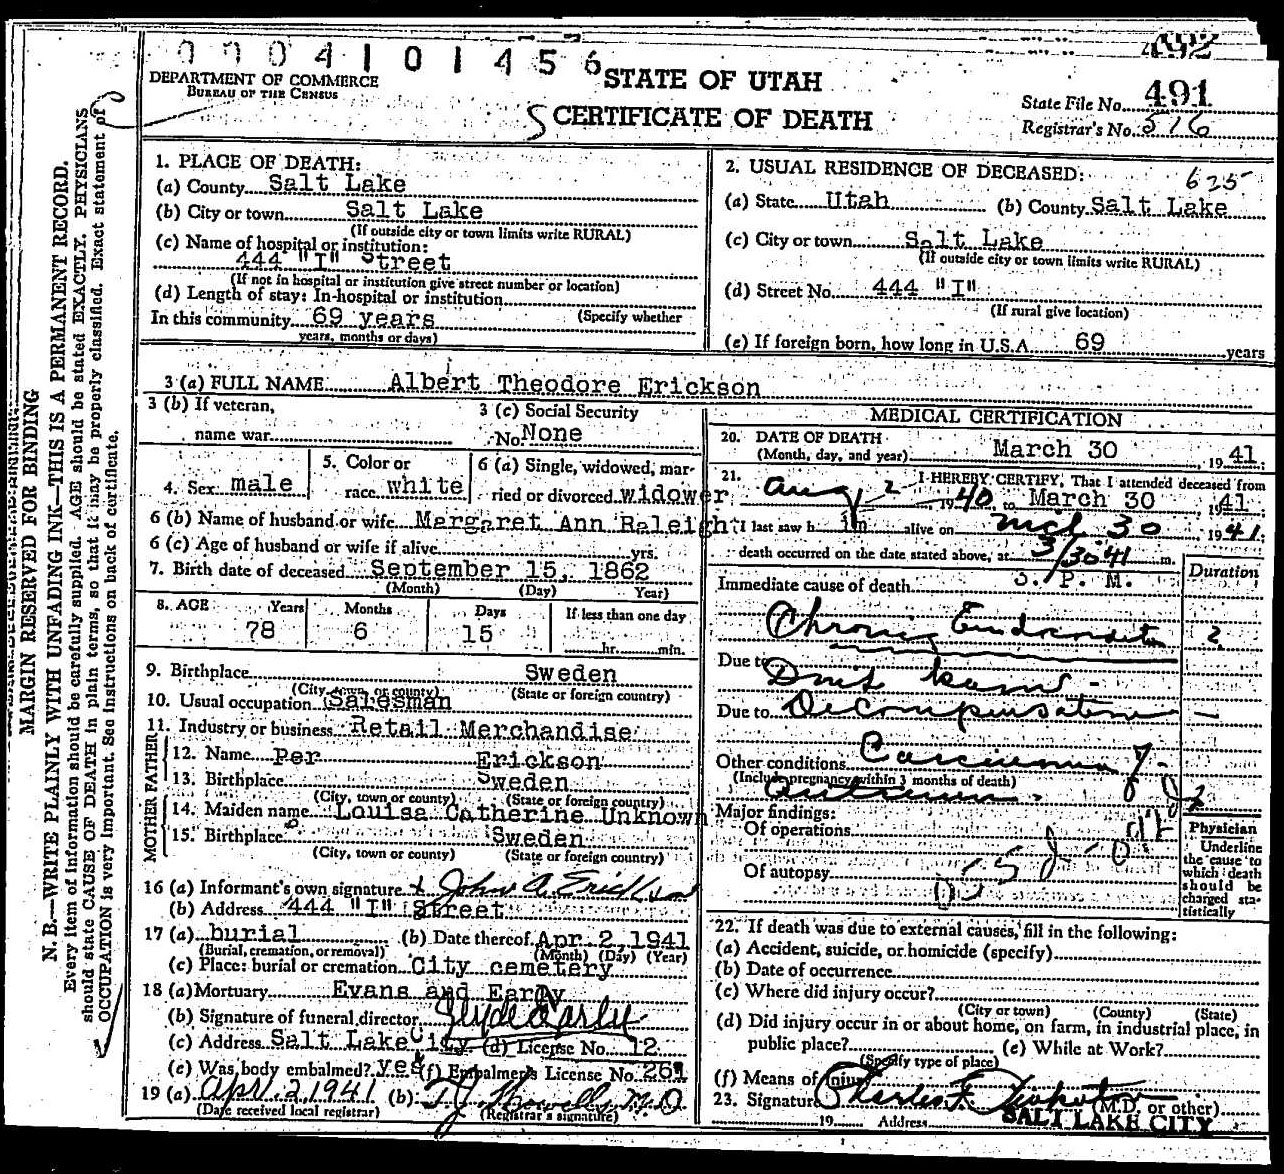 0004101456
492
DEPARTMENT OF COMMERCE
BUREAU OF THE CENSUS
STATE OF UTAH
CERTIFICATE OF DEATH
State File No. 491
Registrar's No. 516
MARGIN RESERVED FOR BINDING
N. B.—WRITE PLAINLY WITH UNFADING INK—THIS IS A PERMANENT RECORD.
Every item of information should be carefully supplied. AGE should be stated EXACTLY. PHYSICIANS
should state CAUSE OF DEATH in plain terms, so that it may be properly classified. Exact statement of
OCCUPATION is very important. See instructions on back of certificate.
1. PLACE OF DEATH:
(a) County Salt Lake
(b) City or town Salt Lake
(If outside city or town limits write RURAL)
(c) Name of hospital or institution:
444 "I" Street
(If not in hospital or institution give street number or location)
(d) Length of stay: In hospital or institution
In this community 69 years (Specify whether
years, months or days)
2. USUAL RESIDENCE OF DECEASED: 625
(a) State Utah (b) County Salt Lake
(c) City or town Salt Lake
(If outside city or town limits write RURAL)
(d) Street No. 444 "I"
(If rural give location)
(e) If foreign born, how long in U.S.A. 69 years
3 (a) FULL NAME Albert Theodore Erickson
3 (b) If veteran,
name war
3 (c) Social Security
No. None
4. Sex male
5. Color or
race white
6 (a) Single, widowed, mar-
ried or divorced widower
6 (b) Name of husband or wife Margaret Ann Raleigh
6 (c) Age of husband or wife if alive yrs.
7. Birth date of deceased September 15, 1862
(Month) (Day) Year)
8. AGE Years Months Days If less than one day
78 6 15 hr. min.
9. Birthplace Sweden
(City, town or county) (State or foreign country)
10. Usual occupation Salesman
11. Industry or business Retail Merchandise
FATHER
12. Name Per Erickson
13. Birthplace Sweden
(City, town or county) (State or foreign country)
MOTHER
14. Maiden name Louisa Catherine Unknown
15. Birthplace Sweden
(City, town or county) (State or foreign country)
16 (a) Informant's own signature x John A. Erickson
(b) Address 444 "I" Street
17 (a) burial (b) Date thereof Apr. 2, 1941
(Burial, cremation, or removal) (Month) (Day) (Year)
(c) Place: burial or cremation City cemetery
18 (a) Mortuary Evans and Early
(b) Signature of funeral director Clyde Early
(c) Address Salt Lake City (d) License No. 12
(e) Was body embalmed? yes (f) Embalmer's License No. 261
19 (a) Apr. 2 1941 (b) T. J. Howells, M.D
(Date received local registrar) (Registrar's signature)
MEDICAL CERTIFICATION
20. DATE OF DEATH
(Month, day, and year) March 30, 1941
21. I HEREBY CERTIFY, That I attended deceased from
Aug 2 1940, to March 30, 1941
I last saw h im alive on Mch 30 1941
death occurred on the date stated above, at 3/30 41 m.
3. P. M.
Duration
Immediate cause of death
Chronic Endocarditis 2
Due to
Due to Decompensation
Other conditions Carcinoma of
(Include pregnancy within 3 months of death)
Antrum
Major findings:
Of operations
Of autopsy
055
Physician
Underline
the cause to
which death
should be
charged sta-
tistically
22. If death was due to external causes, fill in the following:
(a) Accident, suicide, or homicide (specify)
(b) Date of occurrence
(c) Where did injury occur?
(City or town) (County) (State)
(d) Did injury occur in or about home, on farm, in industrial place, in
public place? (e) While at Work?
(Specify type of place)
(f) Means of Injury
23. Signature Charles F. (M.D. or other)
19 Address SALT LAKE CITY